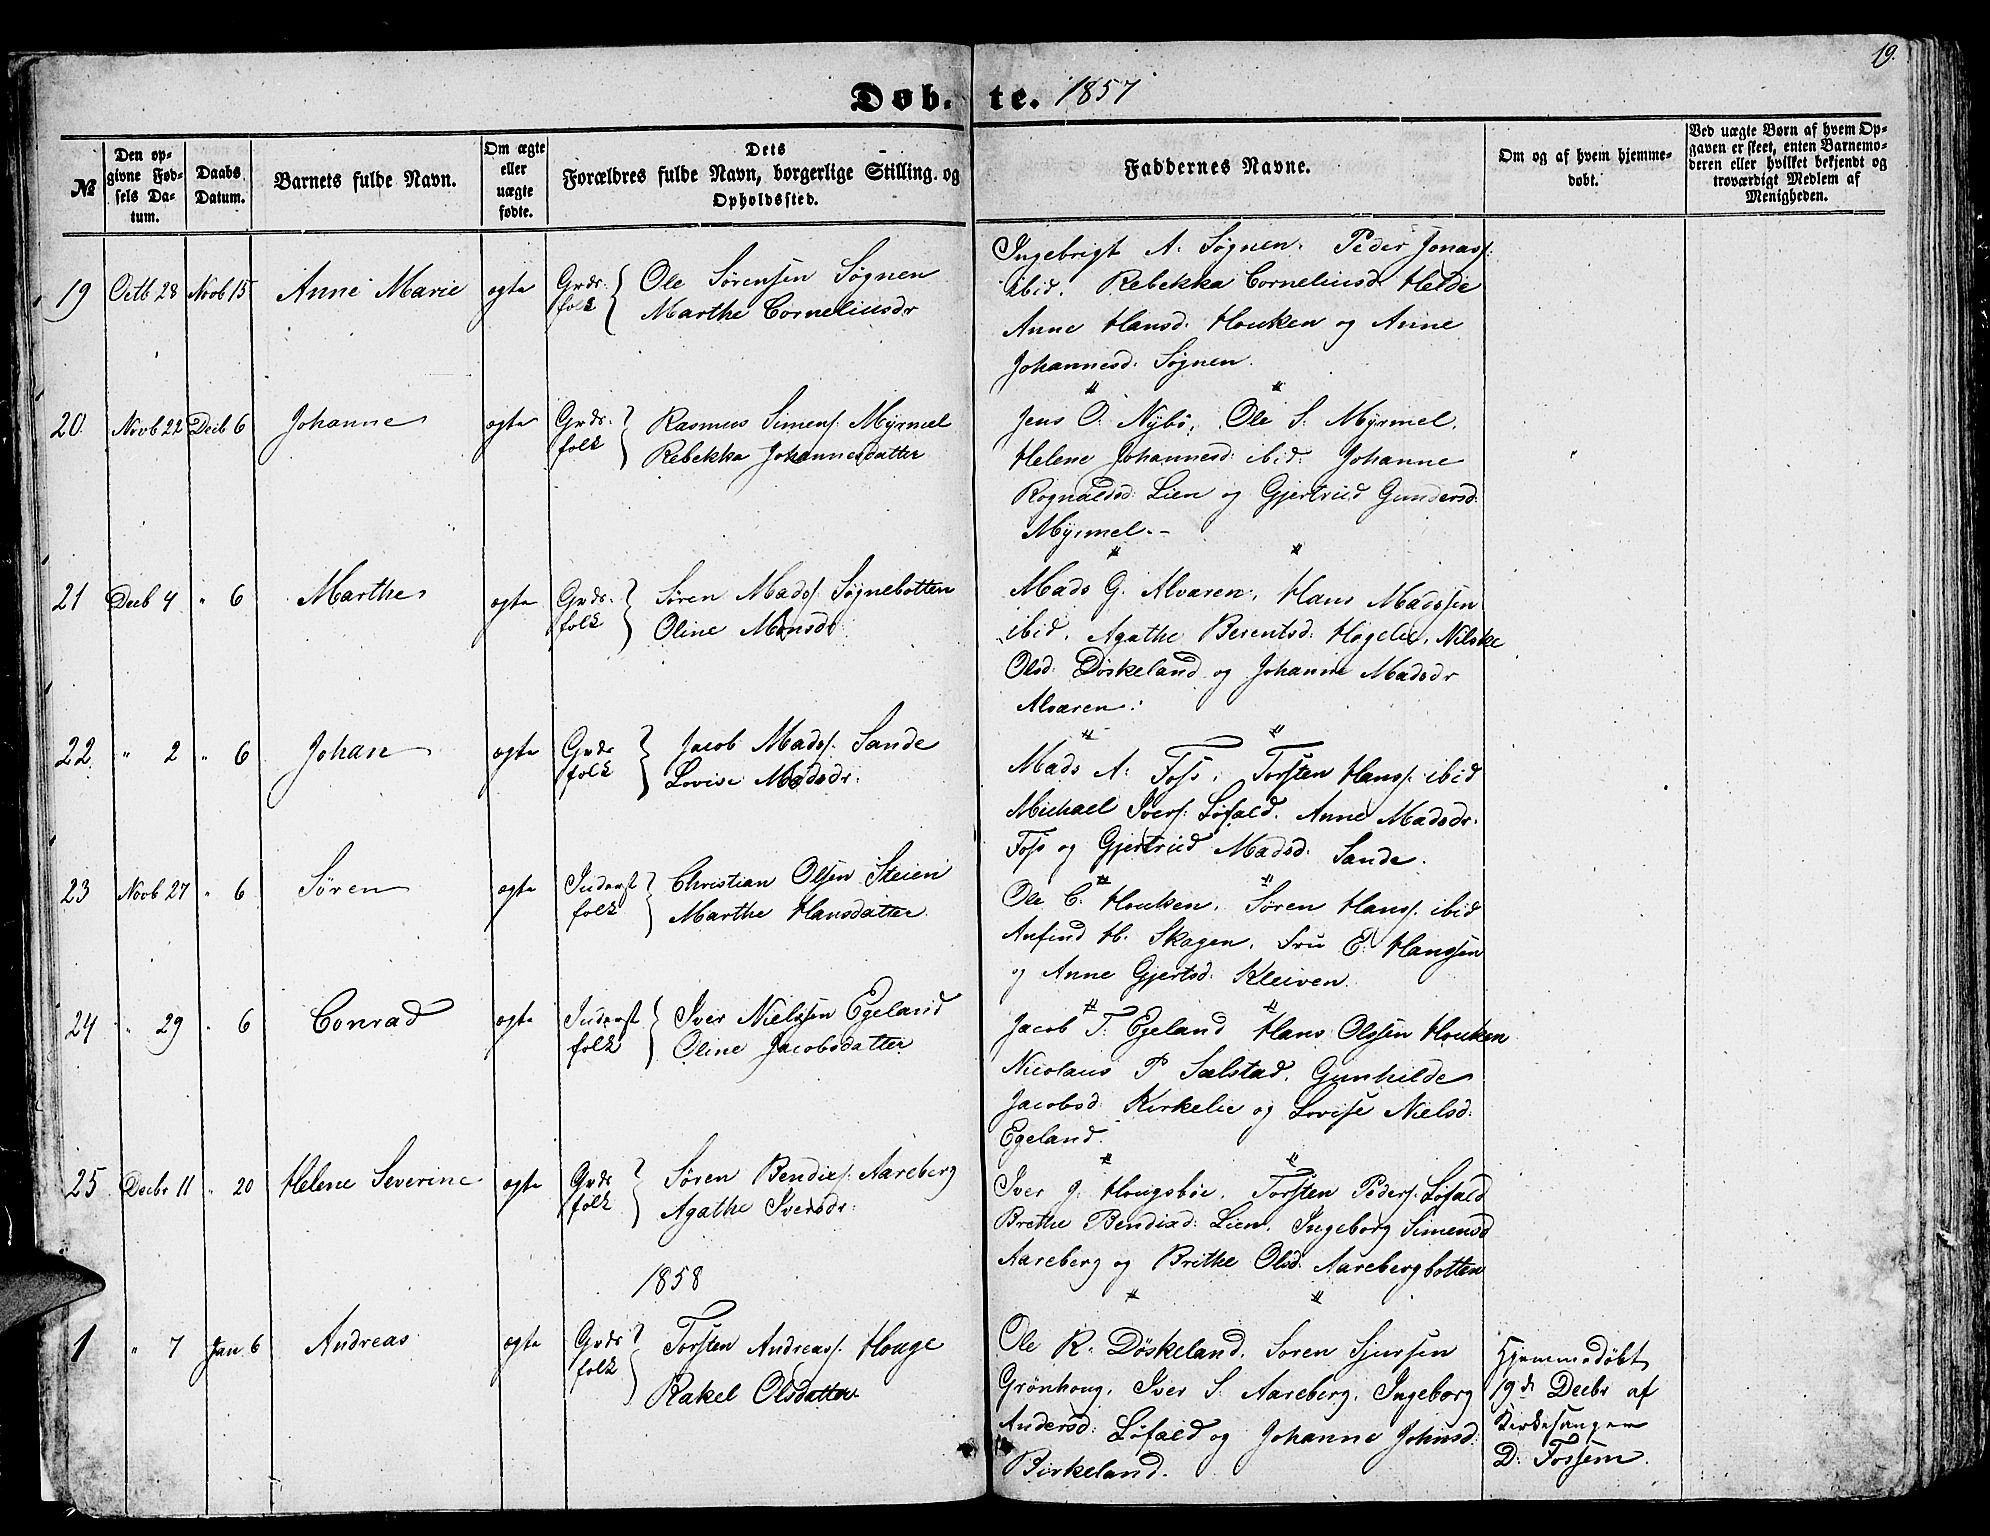 19.
Døb- te. 1857
№
Den op-
givne Fød-
sels Da-
tum.
Daabs
Datum.
Barnets fulde Navn.
Om ægte
eller
uægte
fødte.
Dets
Forældres fulde Navn, borgerlige Stilling og
Opholdssted.
Faddernes Navne.
Om og af hvem hjemme-
døbt.
Ved uægte Børn af hvem Op-
gaven er skeet, enten Barnemo-
deren eller hvilket bekjendt og
troværdigt Medlem af
Menigheden.
19 Octb 28 Novb 15 Anne Marie ægte Grds.
folk
Ole Sørensen Søgnen
Marthe Corneliusdr
Ingebrigt A. Søgnen. Peder Jonass:
ibid. Rebekka Corneliusd. Helde
Anne Hansd. Houken og Anne
Johannesd: Søgnen.
20. Novb 22 Decb 6 Johanne ægte Grds.
folk
Rasmus Simens. Myrmel
Rebekka Johannesdatter
" "
Jens O. Nybø, Ole S. Myrmel.
Helene Johannesd: ibid: Johanne
Rognaldsd: Lien og Gjertrud Gundersd:
Myrmel. -
21 Decb 4 " 6 Marthe ægte Grds.
folk
Søren Madss. Søgnebotten
Oline Monsdr
" "
Mads G. Alvaren, Hans Madssen
ibid. Agathe Berentsd: Høgelie, Nilske
Olsd: Døskeland og Johanne Madsdr
Alvaren.
22. " 2 " 6 Johan ægte Grds
folk
Jacob Madss. Sande
Lovise Madsdr.
" "
Mads A. Foss, Torsten Hanss. ibid
Michael Ivers. Løfald. Anne Madsdr.
Foss og Gjertrud Madsd. Sande.
23 Novb 27 " 6 Søren ægte Inderst
folk
Christian Olsen Steien
Marthe Hansdatter
" "
Ole C. Houken. Søren Hanss. ibid
Anfind H. Skagen. Fru E. Hanssen
og Anne Gjertsd: Kleiven.
24 " 29 " 6 Conrad ægte Inderst
folk
Iver Nielssen Egeland
Oline Jacobsdatter
" "
Jacob T. Egeland Hans Olssen Houken
Nicolaus P Sælstad. Gunhilde
Jacobsd: Kirkelie og Lovise Nielsd:
Egeland.
25 Decbr 11 " 20 Helene Severine ægte Grds
folk
Søren Bendixs. Aareberg
Agathe Iversdr.
" "
Iver J. Hougsbøe. Torsten Peders. Løfald
Brethe Bendixd: Lien. Ingeborg Simensd
Aareberg og Brithe Olsd: Aarebergbotten
1858
1 " 7 Jan 6 Andreas ægte Grds
folk
Torsten Andreass. Houge
Rakel Olsdatter
" "
Ole R. Døskeland. Soren Sjursen
Grønhoug. Iver S. Aareberg. Ingeborg
Andersd: Løfald og Johanne Johnsd:
Birkeland.
Hjemmedøbt
19de Decbr af
Kirkesanger
D. Fossem.